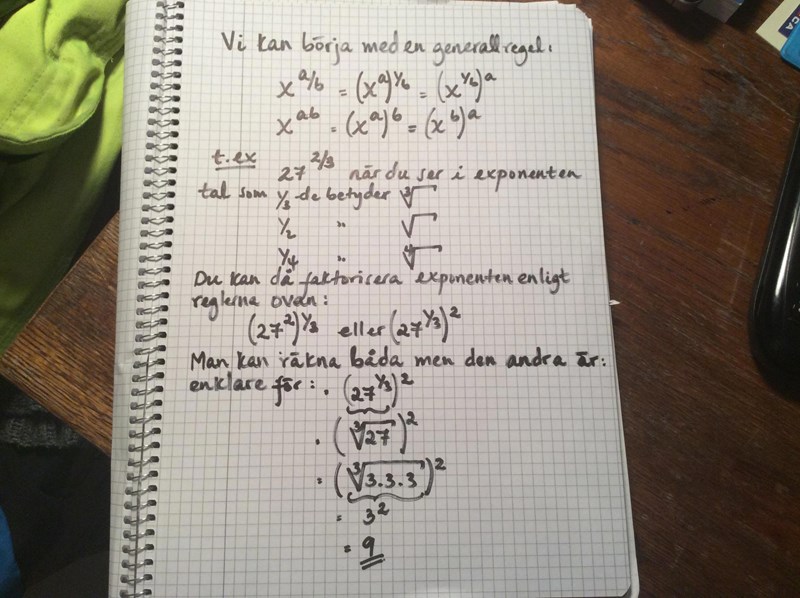 Vi kan börja med en generall regel:
x^{a/b} = (x^a)^{1/b} = (x^{1/b})^a
x^{ab} = (x^a)^b = (x^b)^a
t.ex 27^{2/3} när du ser i exponenten
tal som 1/3 de betyder ∛
1/2 " √
1/4 " ∜
Du kan då faktorisera exponenten enligt
reglerna ovan:
(27^2)^{1/3} eller (27^{1/3})^2
Man kan räkna båda men den andra är:
enklare för: . (27^{1/3})^2
. (∛27)^2
= (∛3.3.3)^2
= 3^2
= 9